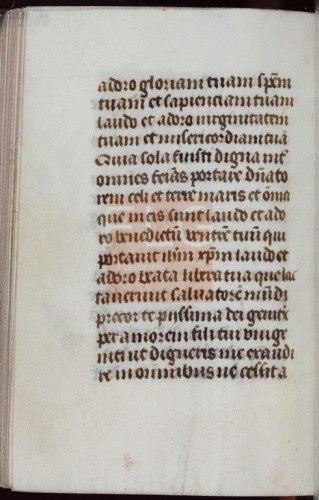 adoro gloriam tuam spem
tuam et sapienciam tuam
laudo et adoro virginitatem
tuam et misericordiam tuā
Quia sola fuisti digna int͛
omnes feīas portare dn̄ato
rem celi et terre maris et om̄ia
que in eis sunt laudo et ado
ro benedictū ventrē tuū qui
portavit ihm̄ xp̄m laudo et
adoro beata ubera tua que lac
taverunt salvatorē mūdi
precor te piissima dei genitͥx
per amorem fili tui unige
niti ut digneris me exaudi
re in omnibus ne cessita